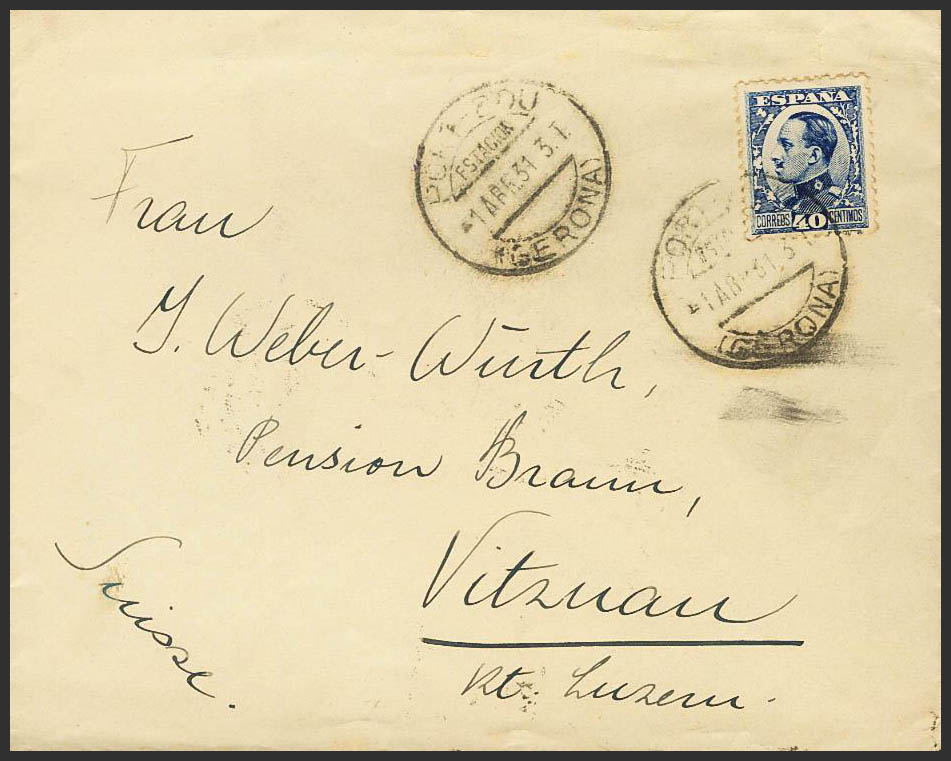 ESPAÑA
CORREOS 40 CENTIMOS
PORT-BOU
ESTACION
*1 ABR.31 3.T.
(GERONA)
PORT
*1 ABR 31 3.T
(GERONA)
Frau
J. Weber-Würth,
Pension Braun,
Vitznau
Kt. Luzern.
Suisse.